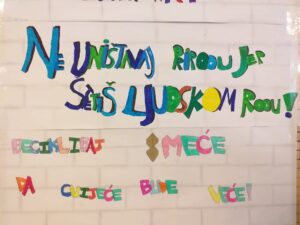 NE UNIŠTAVAJ PRIRODU JER
ŠTETIŠ LJUDSKOM RODU!
RECIKLIRAJ SMEĆE
DA CVIJEĆE BUDE VEĆE!